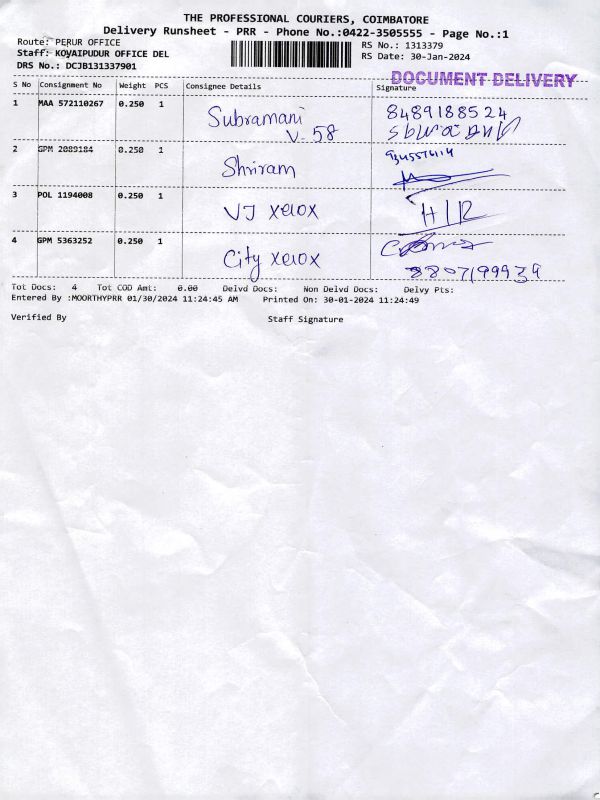 THE PROFESSIONAL COURIERS, COIMBATORE
Delivery Runsheet - PRR - Phone No.:0422-3505555 - Page No.:1
Route: PERUR OFFICE
Staff: KOYAIPUDUR OFFICE DEL
DRS No.: DCJB131337901
RS No.: 1313379
RS Date: 30-Jan-2024
DOCUMENT DELIVERY
S No Consignment No Weight PCS Consignee Details Signature
1 MAA 572110267 0.250 1 Subramani 8489188524
V-58
2 GPM 2089184 0.250 1 Shriram
3 POL 1194008 0.250 1 VJ xerox
4 GPM 5363252 0.250 1 City xerox
8807199939
Tot Docs: 4 Tot COD Amt: 0.00 Delvd Docs: Non Delvd Docs: Delvy Pts:
Entered By :MOORTHYPRR 01/30/2024 11:24:45 AM Printed On: 30-01-2024 11:24:49
Verified By Staff Signature